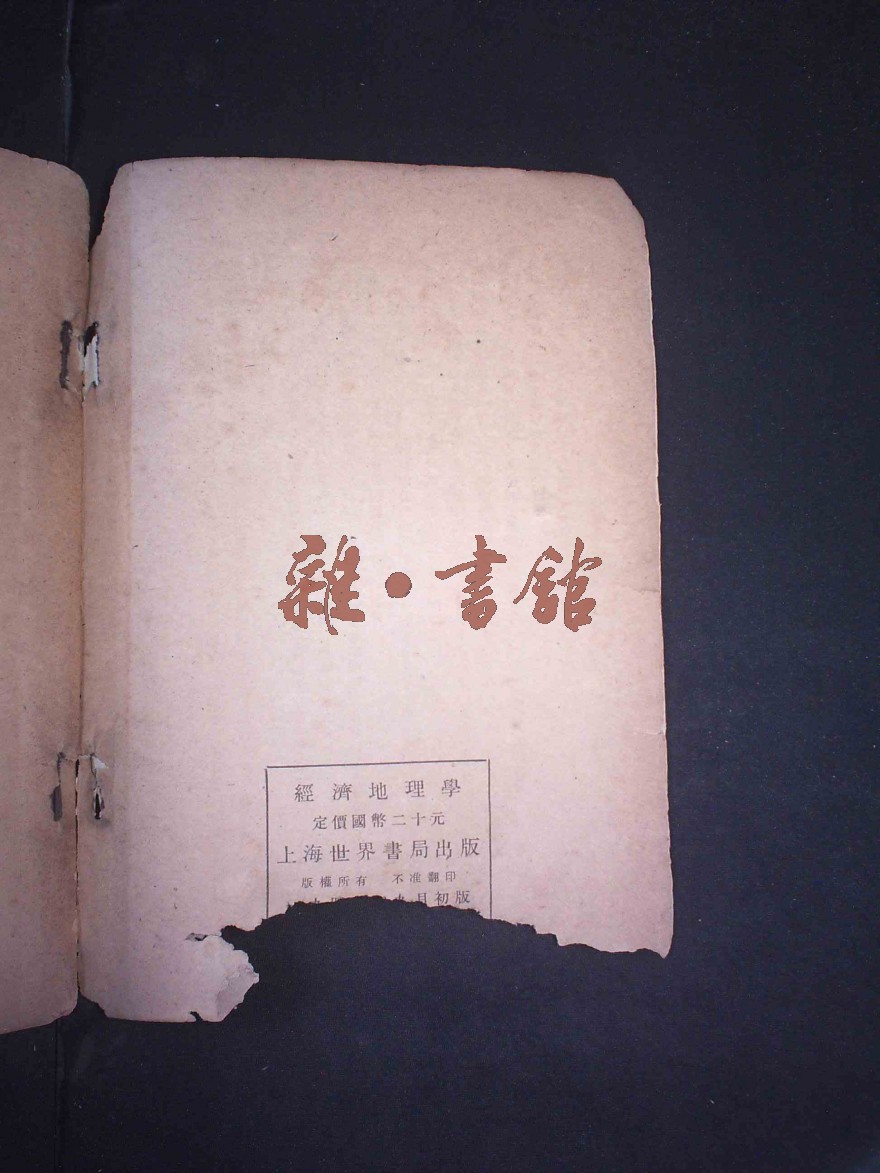 雜·書館
經濟地理學
定價國幣二十元
上海世界書局出版
版權所有 不准翻印
月初版